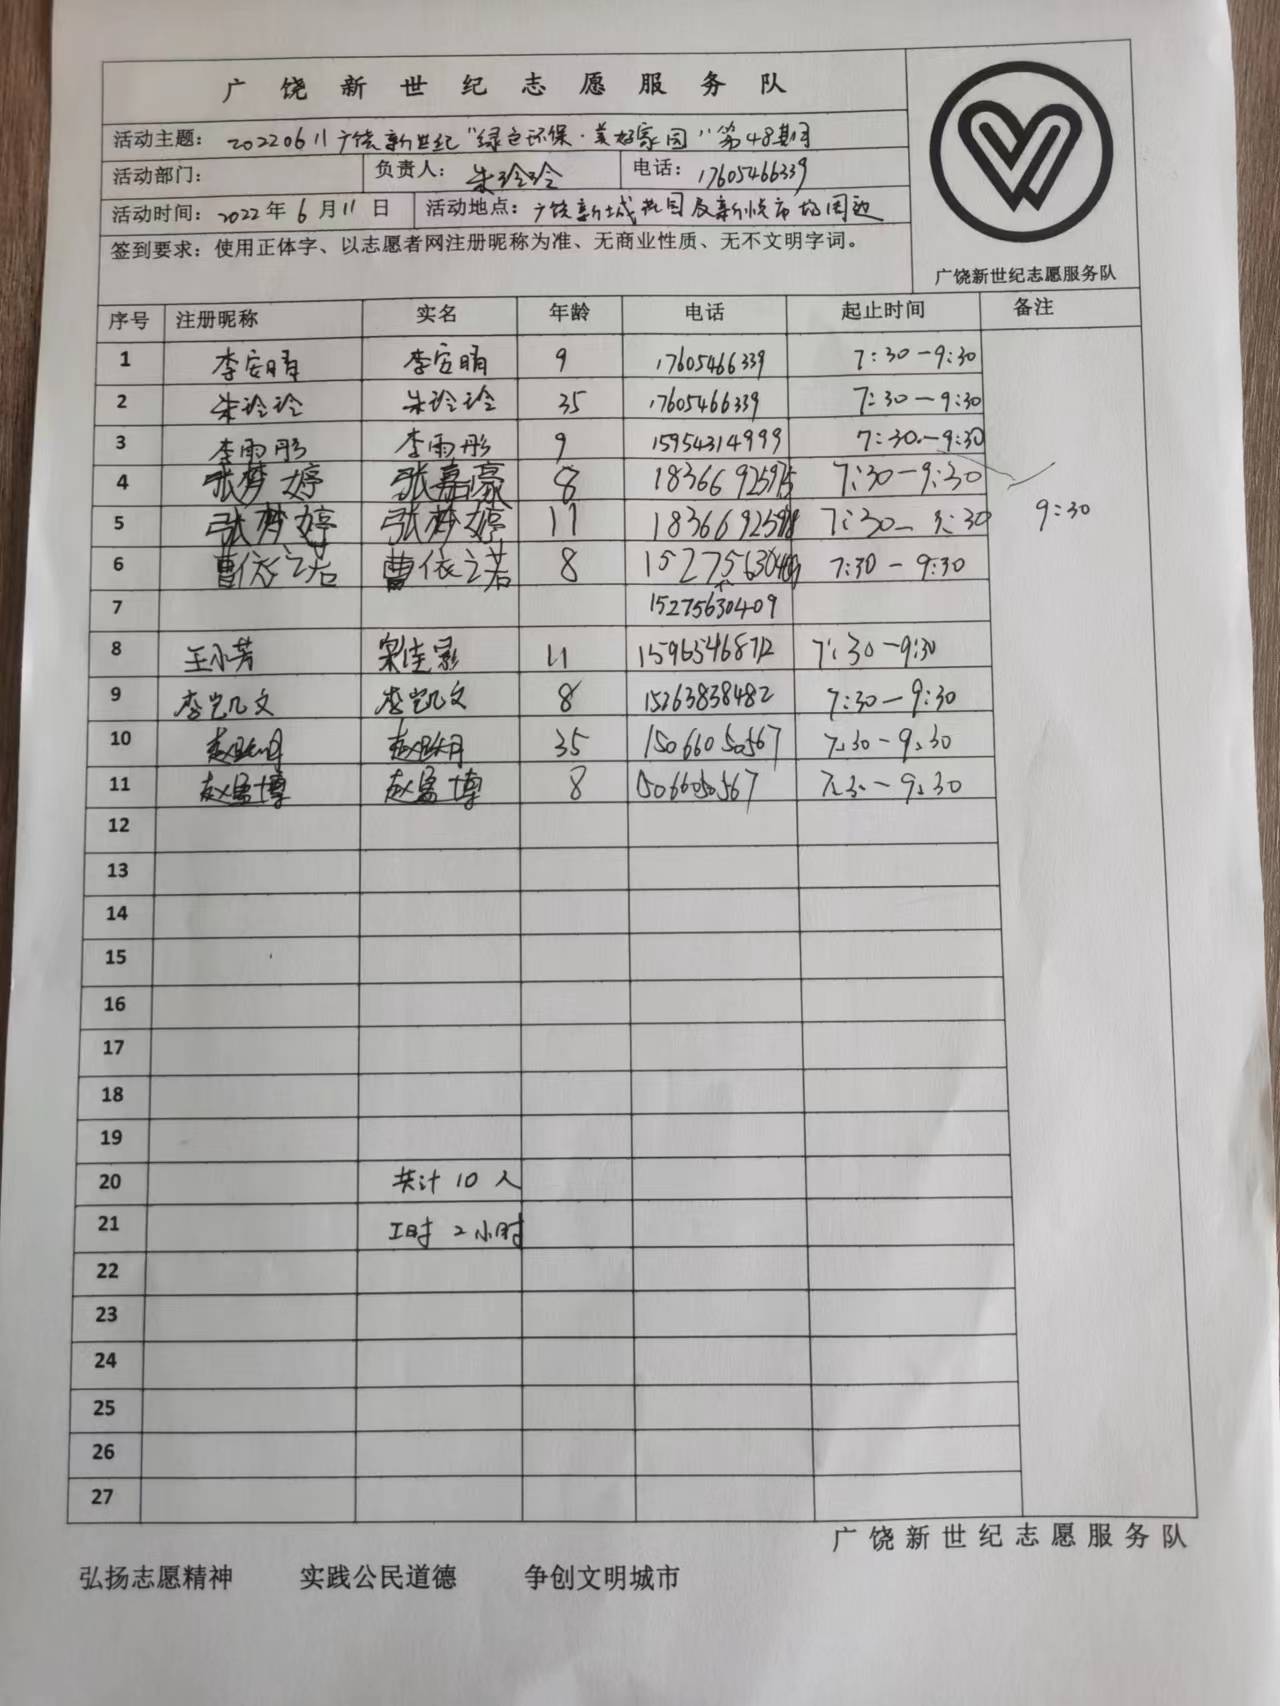 广饶新世纪志愿服务队
活动主题: 20220611广饶新世纪"绿色环保·美好家园"第48期
活动部门: 负责人: 朱玲玲 电话: 17605466339
活动时间: 2022年6月11日 活动地点: 广饶新城花园及新悦市场周边
签到要求: 使用正体字、以志愿者网注册昵称为准、无商业性质、无不文明字词。
广饶新世纪志愿服务队
序号 注册昵称 实名 年龄 电话 起止时间 备注
1 李安晴 李安晴 9 17605466339 7:30-9:30
2 朱玲玲 朱玲玲 35 17605466339 7:30-9:30
3 李雨彤 李雨彤 9 15954314999 7:30-9:30
4 张梦婷 张嘉豪 8 7:30-9:30
5 张梦婷 张梦婷 11 7:30-9:30 9:30
6 曹依之若 曹依之若 8 7:30-9:30
7 15275630409
8 王小芳 11 7:30-9:30
9 李凯文 李凯文 8 15263838482 7:30-9:30
10 35 15066050567 7.30-9.30
11 赵孟博 赵孟博 8 7.30-9.30
12
13
14
15
16
17
18
19
20 共计10人
21 工时 2小时
22
23
24
25
26
27
广饶新世纪志愿服务队
弘扬志愿精神 实践公民道德 争创文明城市